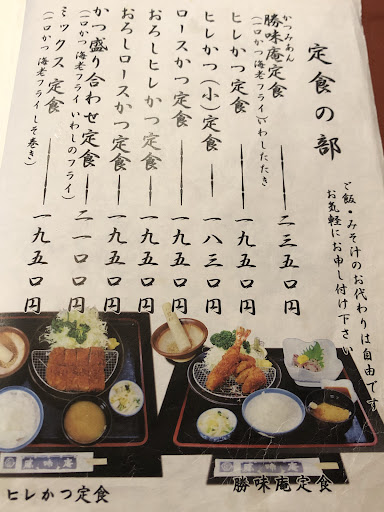 定食の部
ご飯・みそ汁のお代わりは自由です
お気軽にお申し付け下さい
かつみあん
勝味庵定食 二三五〇円
(一口かつ 海老フライ いわしたたき)
ヒレかつ定食 一九五〇円
ヒレかつ(小)定食 一八三〇円
ロースかつ定食 一九五〇円
おろしヒレかつ定食 一九五〇円
おろしロースかつ定食 一九五〇円
かつ盛り合わせ定食 二一〇〇円
(一口かつ 海老フライ いわしのフライ)
ミックス定食 一九五〇円
(一口かつ 海老フライ しそ巻き)
勝味庵
勝味庵
ヒレかつ定食
勝味庵定食